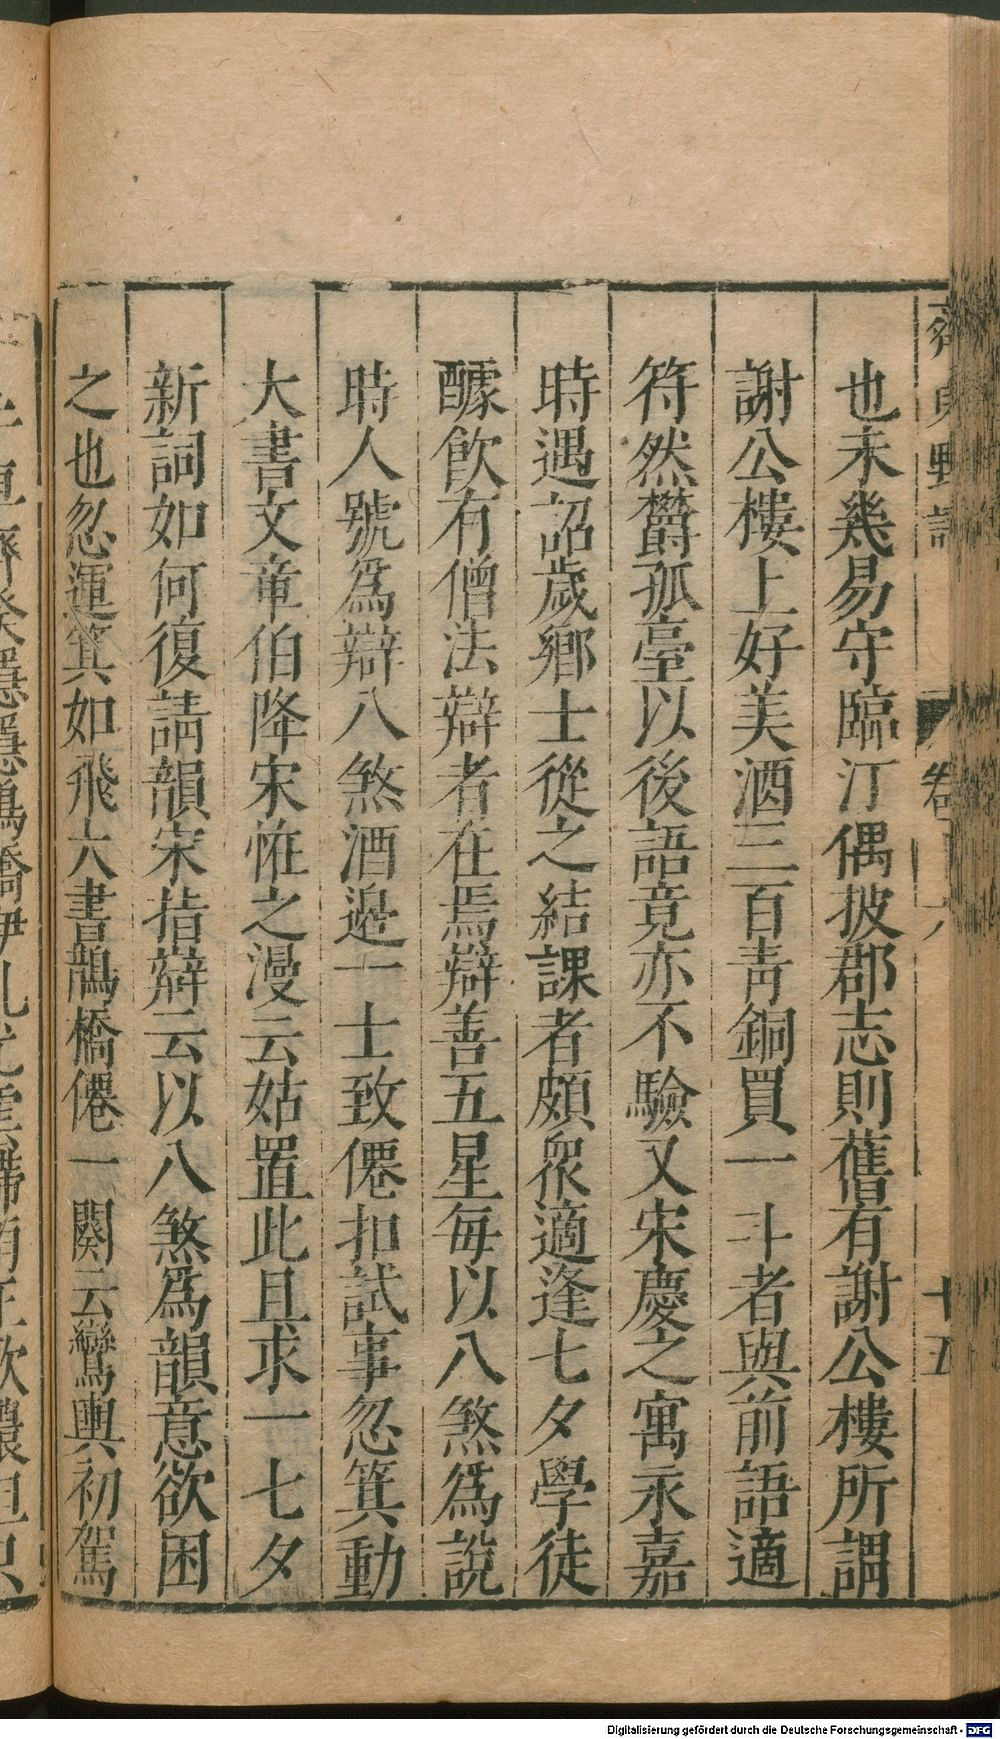 也未幾易守臨汀偶披郡志則舊有謝公樓所謂
謝公樓上好美酒三百青銅買一斗者與前語適
符然欝孤臺以後語竟亦不驗又宋慶之寓永嘉
時遇詔歲鄉士從之結課者頗衆適逢七夕學徒
醵飲有僧法辯者在焉辯善五星每以八煞爲說
時人號爲辯八煞酒邊一士致僊扣試事忽箕動
大書文章伯降宋恠之漫云姑置此且求一七夕
新詞如何復請韻宋指辯云以八煞爲韻意欲困
之也忽運箕如飛大書鵲橋僊一闋云鸞輿初駕
野語
卷
十五
Digitalisierung gefördert durch die Deutsche Forschungsgemeinschaft - DFG